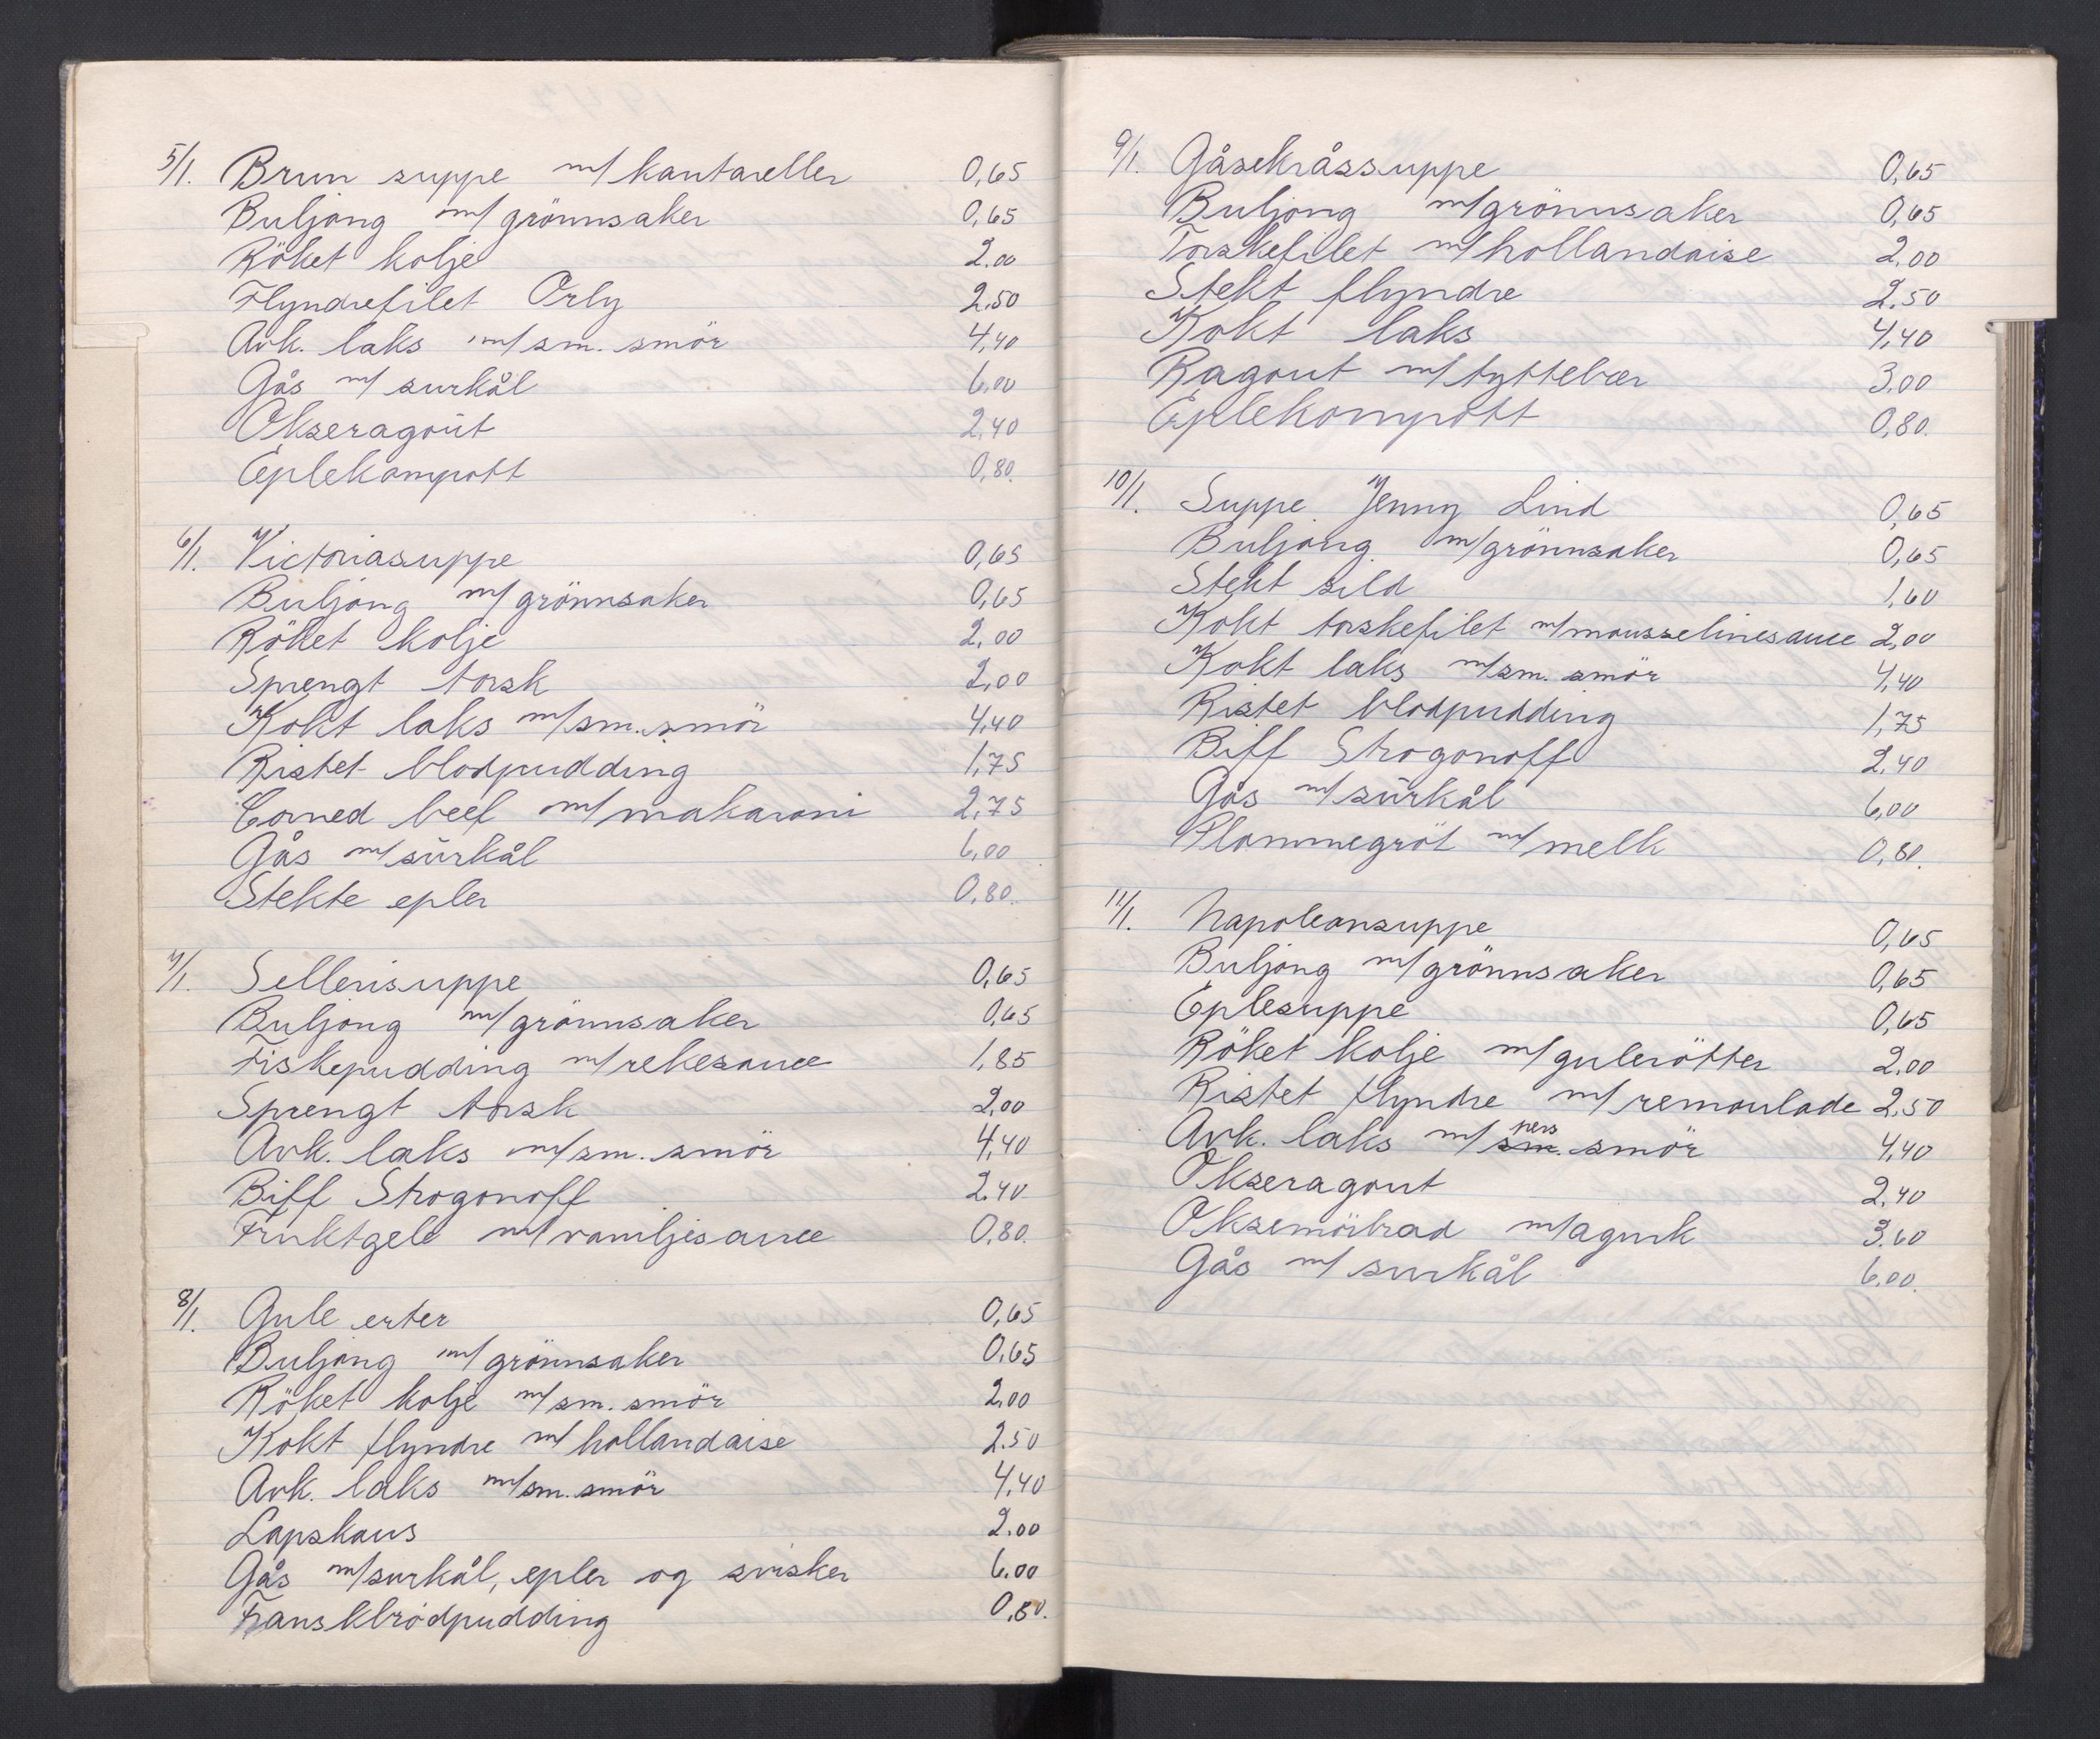 5/1. Brun suppe m/ kantareller 0,65
Buljong m/ grönnsaker 0,65
Röket kolje 2.00
Flyndrefilet Orly 2.50
Avk. laks m/ sm. smör 4,40
Gås m/ surkål 6,00
Okseragout 2,40
Eplekompott 0,80.
6/1. Victoriasuppe 0,65
Buljong m/ grönnsaker 0,65
Röket kolje 2,00
Sprengt torsk 2,00
Kokt laks m/ sm. smör 4,40
Ristet blodpudding 1,75
Corned beef m/ makaroni 2,75
Gås m/ surkål 6,00
Stekte epler 0,80.
7/1. Sellerisuppe 0,65
Buljong m/ grönnsaker 0,65
Fiskepudding m/ rekesauce 1,85
Sprengt torsk 2,00
Avk. laks m/ sm. smör 4,40
Biff Strogonoff 2.40
Fruktgele m/ vaniljesauce 0,80.
8/1. Gule erter 0,65
Buljong m/ grönnsaker 0,65
Röket kolje m/ sm. smör 2,00
Kokt flyndre m/ hollandaise 2.50
Avk. laks m/ sm. smör 4,40
Lapskaus 2.00
Gås m/ surkål, epler og svisker 6.00
Franskbrödpudding 0,80.
9/1. Gåsekråssuppe 0,65
Buljong m/ grönnsaker 0,65
Torskefilet m/ hollandaise 2,00
Stekt flyndre 2.50
Kokt laks 4,40
Ragout m/ tyttebær 3,00
Eplekompott 0,80.
10/1. Suppe Jenny Lind 0,65
Buljong m/ grönnsaker 0,65
Stekt sild 1,60
Kokt torskefilet m/ mousselinesauce 2,00
Kokt laks m/ sm. smör 4,40
Ristet blodpudding 1,75
Biff Strogonoff 2,40
Gås m/ surkål 6,00
Plommegröt m/ melk 0,80.
11/1. Napoleonsuppe 0,65
Buljong m/ grönnsaker 0,65
Eplesuppe 0,65
Röket kolje m/ gulerötter 2.00
Ristet flyndre m/ remoulade 2.50
Avk. laks m/ sm. pers smör 4,40
Okseragout 2.40
Oksemörbrad m/ agurk 3.60
Gås m/ surkål 6,00.